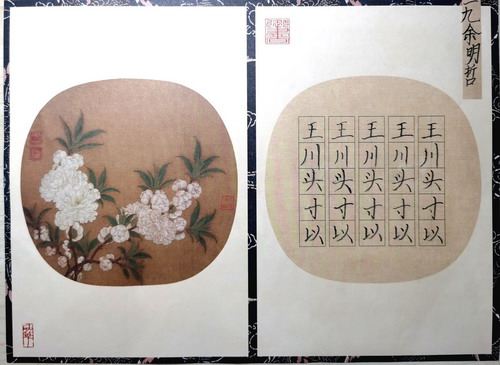 九余明哲
王川头寸以
王川头寸以
王川头寸以
王川头寸以
王川头寸以